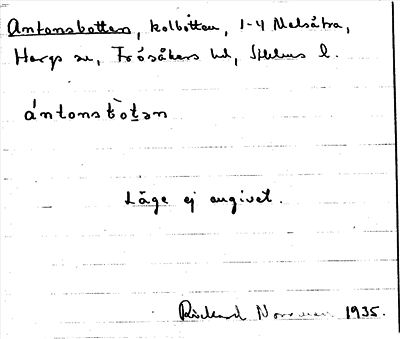 Antonsbotten, kolbotten, 1-4 Malsätra,
Hargs sn, Frösåkers hd, Sthlms l.
ántonstòtən
Läge ej angivet.
Rickard Norrman 1935.